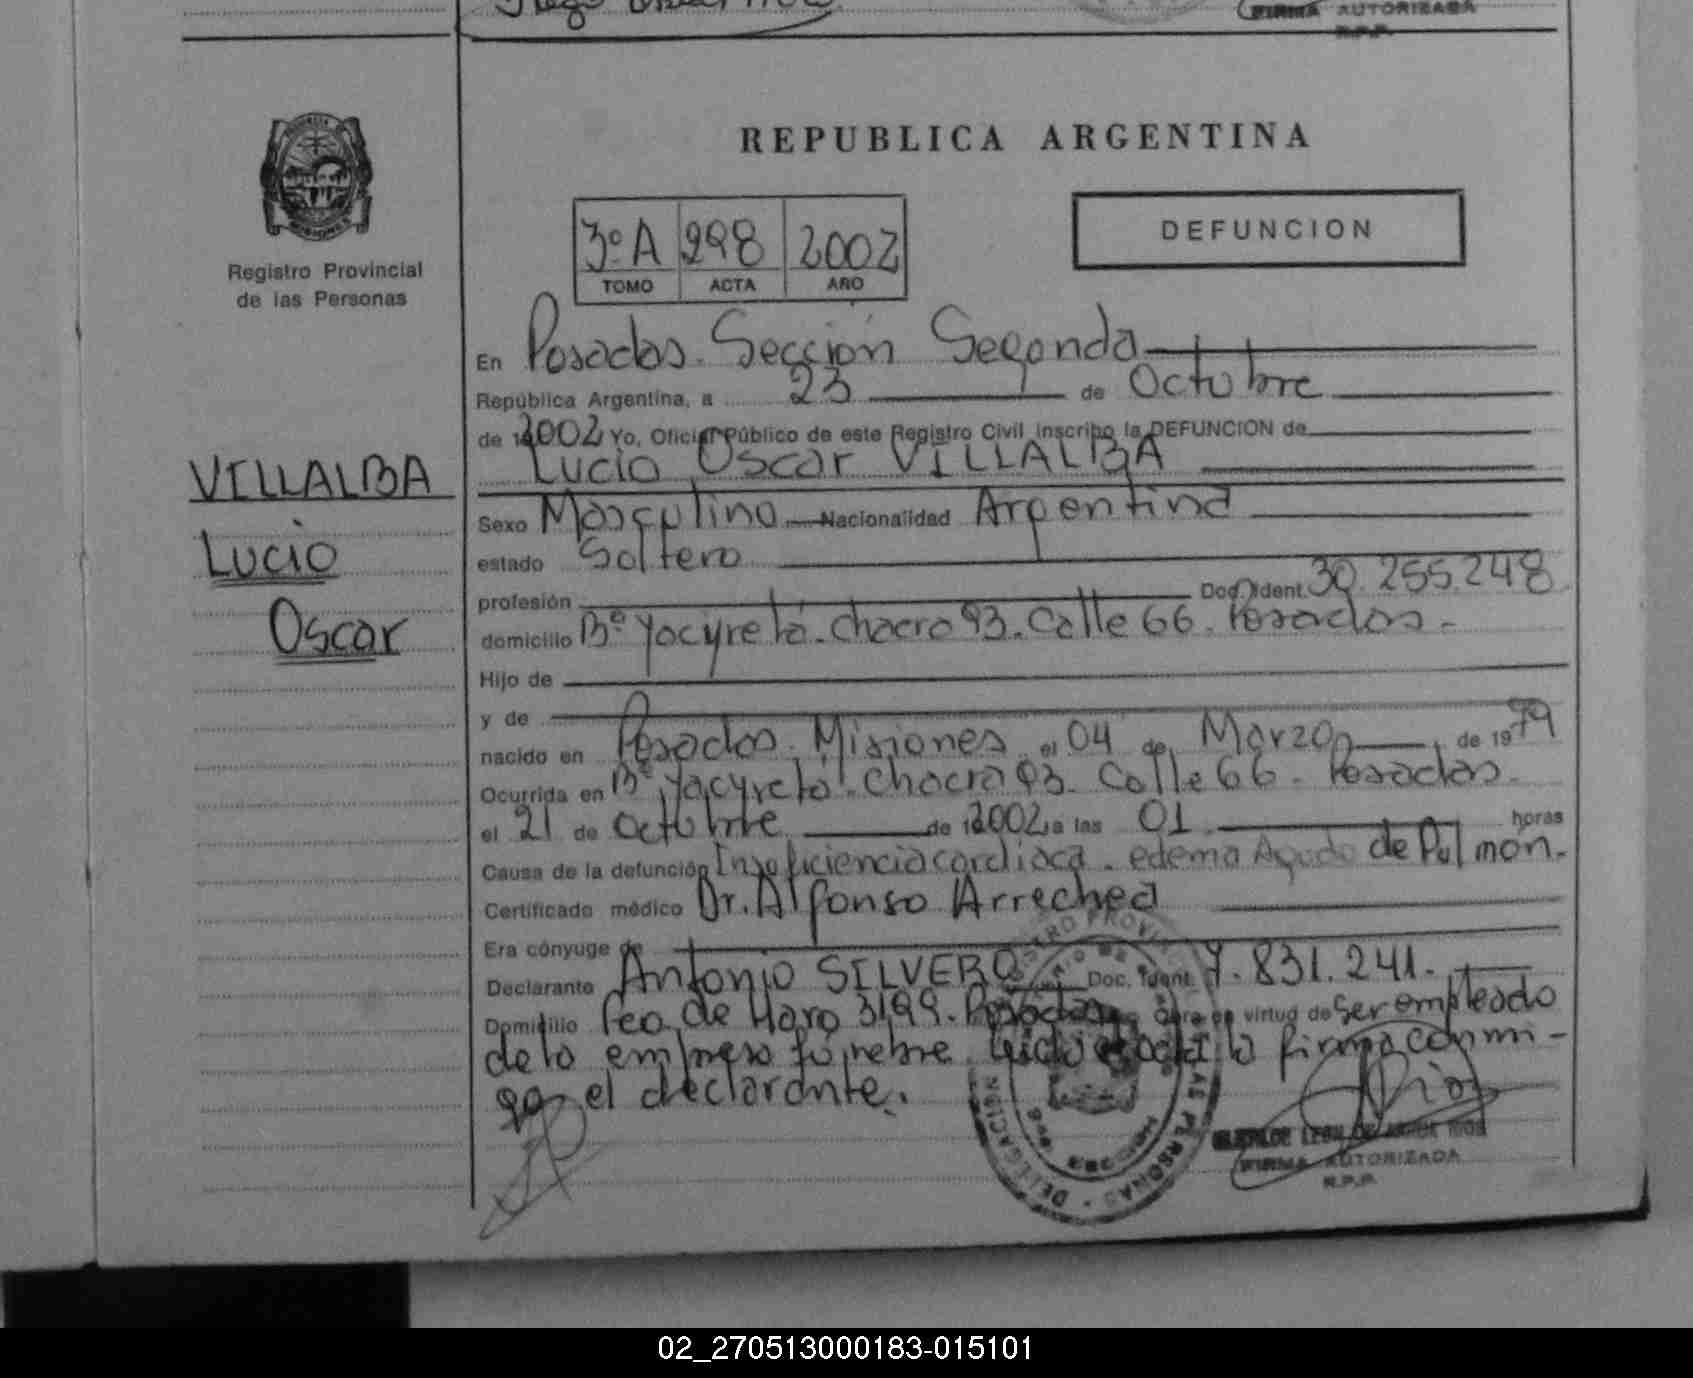 FIRMA AUTORIZADA
R.P.P.
REPUBLICA ARGENTINA
3º A 298 2002
TOMO ACTA AÑO
DEFUNCION
Registro Provincial
de las Personas
VILLALBA
Lucio
Oscar
En Posadas. Sección Segunda
República Argentina, a 23 de Octubre
de 2002 Yo, Oficial Público de este Registro Civil inscribo la DEFUNCION de
Lucio Oscar VILLALBA
Sexo Masculino Nacionalidad Argentina
estado Soltero
profesión Doc. Ident. 30.255.248
domicilio Bº Yacyretá. Chacra 93. Calle 66. Posadas.
Hijo de
y de
nacido en Posadas. Misiones el 04 de Marzo de 1979
Ocurrida en Bº Yacyretá. Chacra 93. Calle 66. Posadas.
el 21 de Octubre de 2002 a las 01 horas
Causa de la defunción Insuficiencia cardíaca. edema Agudo de Pulmón.
Certificado médico Dr. Alfonso Arrechea
Era cónyuge de
Declarante Antonio SILVERO Doc. Ident. 7.831.241.
Domicilio Fco. de Haro 3199. Posadas obra en virtud de ser empleado
de la empresa fúnebre. Leída el acta la firma conmi-
go el declarante.
FIRMA AUTORIZADA
R.P.P.
02_270513000183-015101